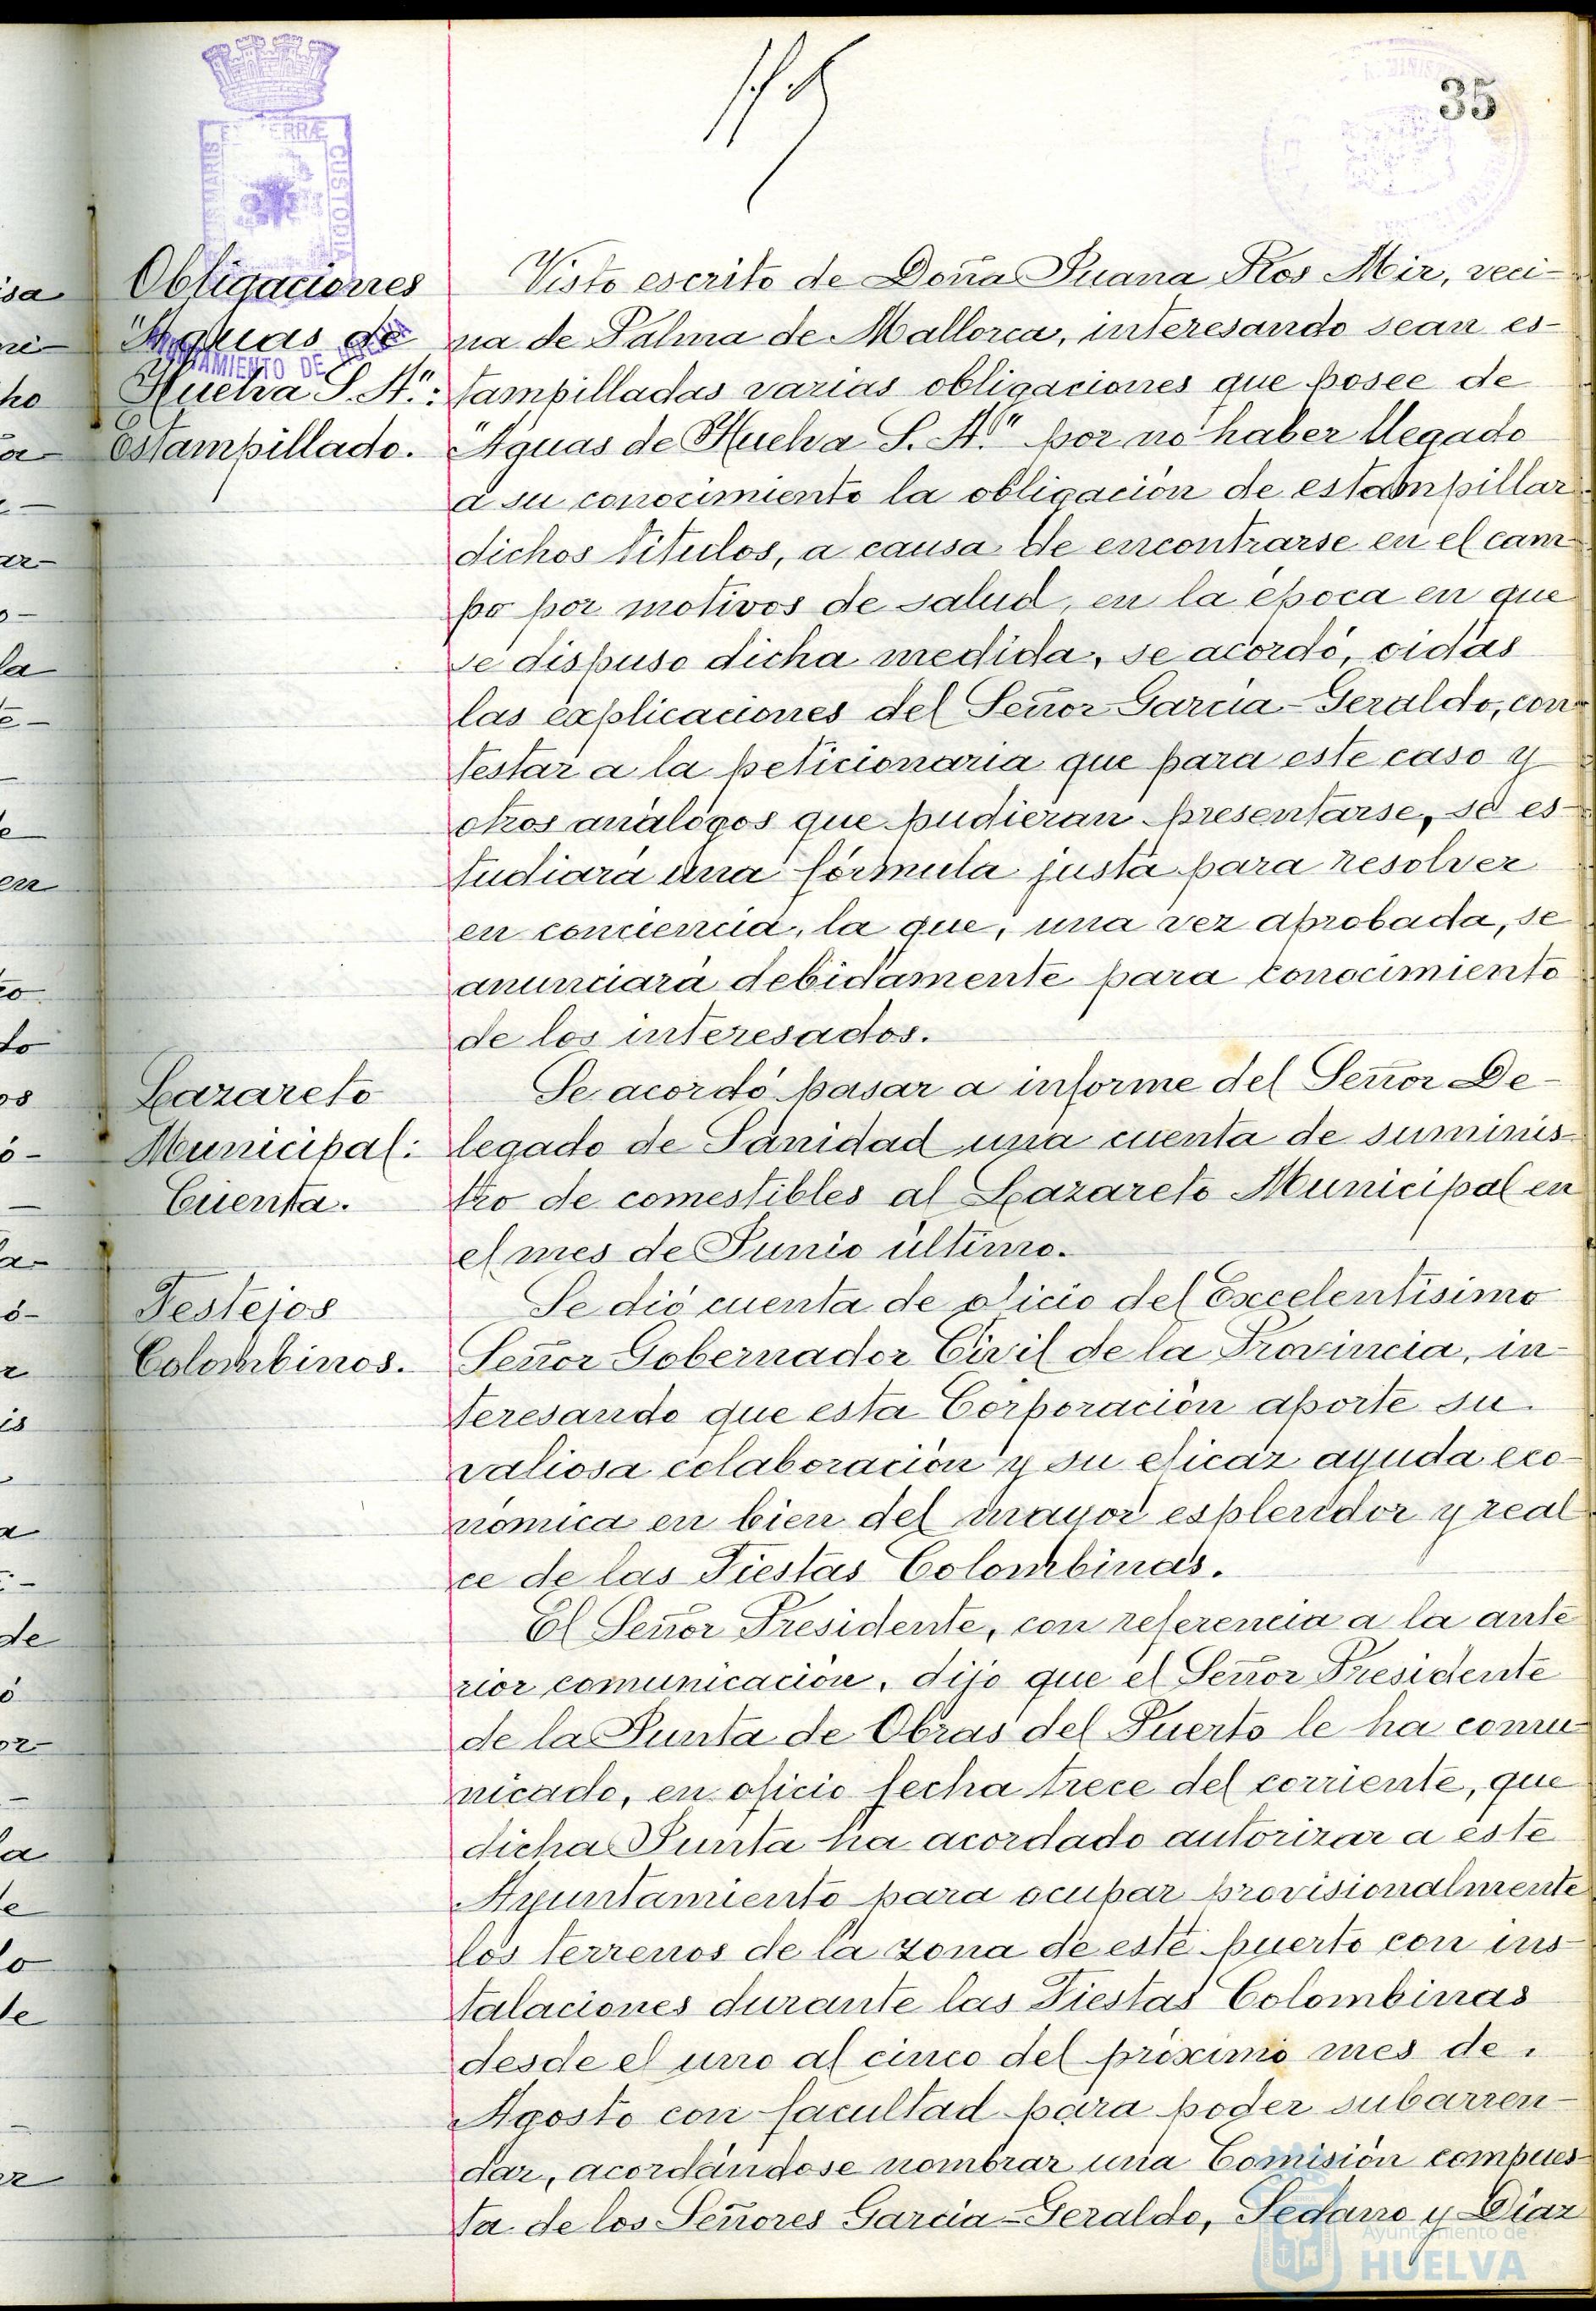 35
Obligaciones
"Aguas de
Huelva S. A.":
Estampillado.
Visto escrito de Doña Juana Ros Mir, veci-
na de Palma de Mallorca, interesando sean es-
tampilladas varias obligaciones que posee de
"Aguas de Huelva S. A." por no haber llegado
a su conocimiento la obligación de estampillar
dichos titulos, a causa de encontrarse en el cam-
po por motivos de salud, en la época en que
se dispuso dicha medida, se acordó, oidas
las explicaciones del Señor Garcia-Geraldo, con-
testar a la peticionaria que para este caso y
otros análogos que pudieran presentarse, se es-
tudiará una fórmula justa para resolver
en conciencia, la que, una vez aprobada, se
anunciará debidamente para conocimiento
de los interesados.
Lazareto
Municipal:
Cuenta.
Se acordó pasar a informe del Señor De-
legado de Sanidad una cuenta de suminis-
tro de comestibles al Lazareto Municipal en
el mes de Junio último.
Festejos
Colombinos.
Se dió cuenta de oficio del Excelentísimo
Señor Gobernador Civil de la Provincia, in-
teresando que esta Corporación aporte su
valiosa colaboración y su eficaz ayuda eco-
nómica en bien del mayor esplendor y real-
ce de las Fiestas Colombinas.
El Señor Presidente, con referencia a la ante-
rior comunicación, dijo que el Señor Presidente
de la Junta de Obras del Puerto le ha comu-
nicado, en oficio fecha trece del corriente, que
dicha Junta ha acordado autorizar a este
Ayuntamiento para ocupar provisionalmente
los terrenos de la zona de este puerto con ins-
talaciones durante las Fiestas Colombinas
desde el uno al cinco del próximo mes de
Agosto con facultad para poder subarren-
dar, acordándose nombrar una Comisión compues-
ta de los Señores Garcia-Geraldo, Sedano y Díaz
AYUNTAMIENTO DE HUELVA
Ayuntamiento de
HUELVA